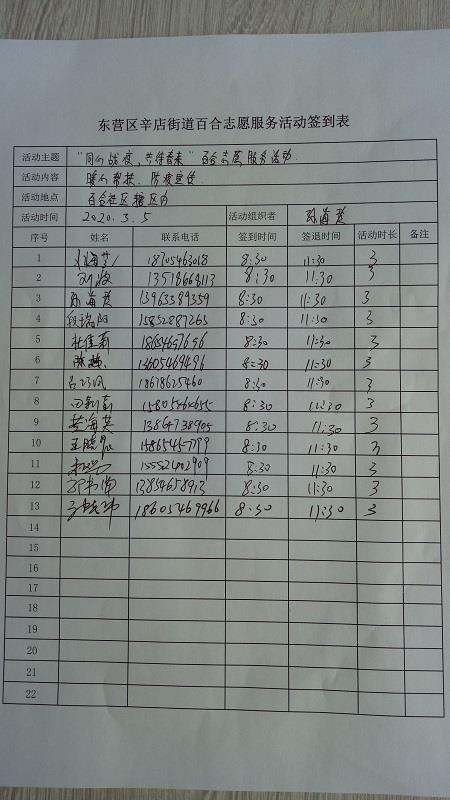 东营区辛店街道百合志愿服务活动签到表
活动主题 "同心战疫、共待春来"百合志愿服务活动
活动内容 暖心帮扶、防疫宣传
活动地点 百合社区辖区内
活动时间 2020.3.5 活动组织者
序号 姓名 联系电话 签到时间 签退时间 活动时长 备注
1 18705463018 8:30 11:30 3
2 刘波 13518668113 8:30 11:30 3
3 13963389359 8:30 11:30 3
4 段瑞阳 15852887265 8:30 11:30 3
5 杜佳莉 18654697696 8:30 11:30 3
6 陈燕 13605469496 8:30 11:30 3
7 吕巧凤 18618625460 8:30 11:30 3
8 8:30 11:30 3
9 黄海英 13864738905 8:30 11:30 3
10 王晓 8:30 11:30 3
11 8:30 11:30 3
12 13854658913 8:30 11:30 3
13 18605469966 8:30 11:30 3
14
15
16
17
18
19
20
21
22